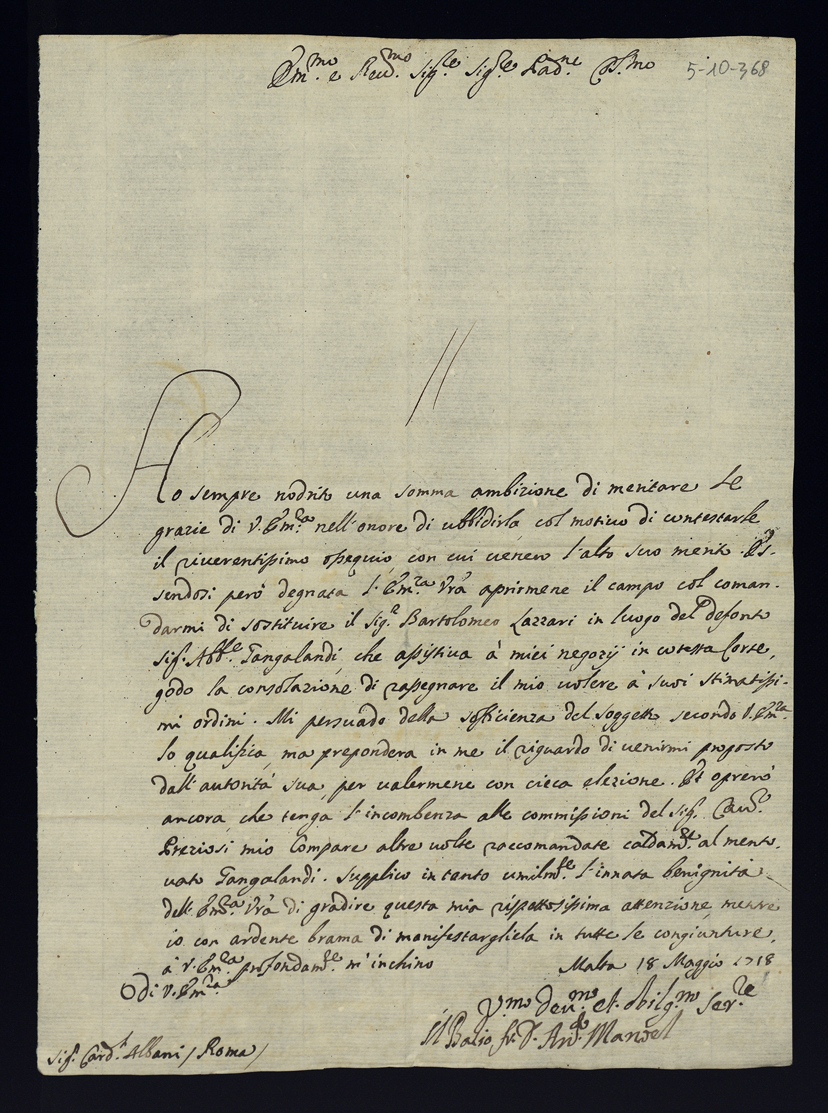 Em.mo e Rev.mo Sig.re Sig.re Pad.ne Co.mo
5-10-368
Ho sempre nodrito una somma ambizione di meritare le
grazie di V. Em.za nell'onore di ubbidirla, col motivo di contestarle
il riverentissimo ossequio, con cui venero l'alto suo merito. Es-
sendosi però degnata l'Em.za Vra aprirmene il campo col coman-
darmi di sostituire il Sig.r Bartolomeo Lazzari in luogo del defonto
Sig.r Abb.e Tangalandi, che assisteva à miei negozij in cotesta Corte,
godo la consolazione di rassegnare il mio volere à suoi stimatissi-
mi ordini. Mi persuado della sofficienza del soggetto secondo V. Em.za
lo qualifica, ma prepondera in me il riguardo di venirmi proposto
dall'autorità sua, per valermene con cieca elezione. Et oprerò
ancora, che tenga l'incombenza alle commissioni del Sig.r Cav.re
Preziosi mio Compare altre volte raccomandate caldam.te al mento-
vato Tangalandi. Supplico in tanto umilm.te l'innata benignità
dell'Em.za Vra di gradire questa mia rispettosissima attenzione, mentre
io con ardente brama di manifestargliela in tutte le congiunture,
à V. Em.za profondam.te m'inchino
Malta 18 Maggio 1718
Di V. Em.za
V.mo dev.mo et obilg.mo Ser.re
Il Balio fr. D. And. Manuel
Sig.r Card.l Albani / Roma /